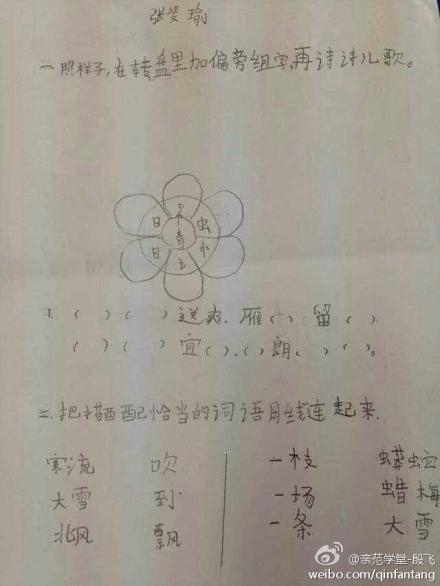 张斐瑜
一照样子,在转盘里加偏旁组字,再诗诗儿歌。
日 虫
青
日 忄
1.( )( )送爽.雁( )留( ).
( )( )宜( ).( )朗.( )( )。
二.把搭配恰当的词语用线连起来.
寒流 吹 一枝 蟒蛇
大雪 到 一场 蜡梅
北风 飘 一条 大雪
@亲范学堂-殷飞
weibo.com/qinfantang